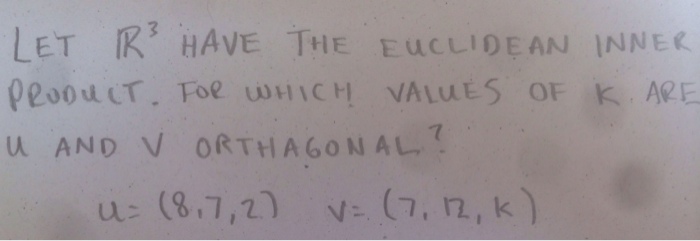 LET ℝ³ HAVE THE EUCLIDEAN INNER
PRODUCT. FOR WHICH VALUES OF K ARE
U AND V ORTHAGONAL?
u = (8,7,2) v = (7, 12, k)